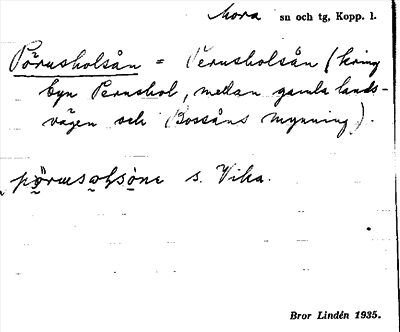 Mora sn och tg, Kopp. l.
Pörusholsån = Perusholsån (kring
byn Perushol, mellan gamla lands-
vägen och Bossåns mynning).
s. Vika.
Bror Lindén 1935.